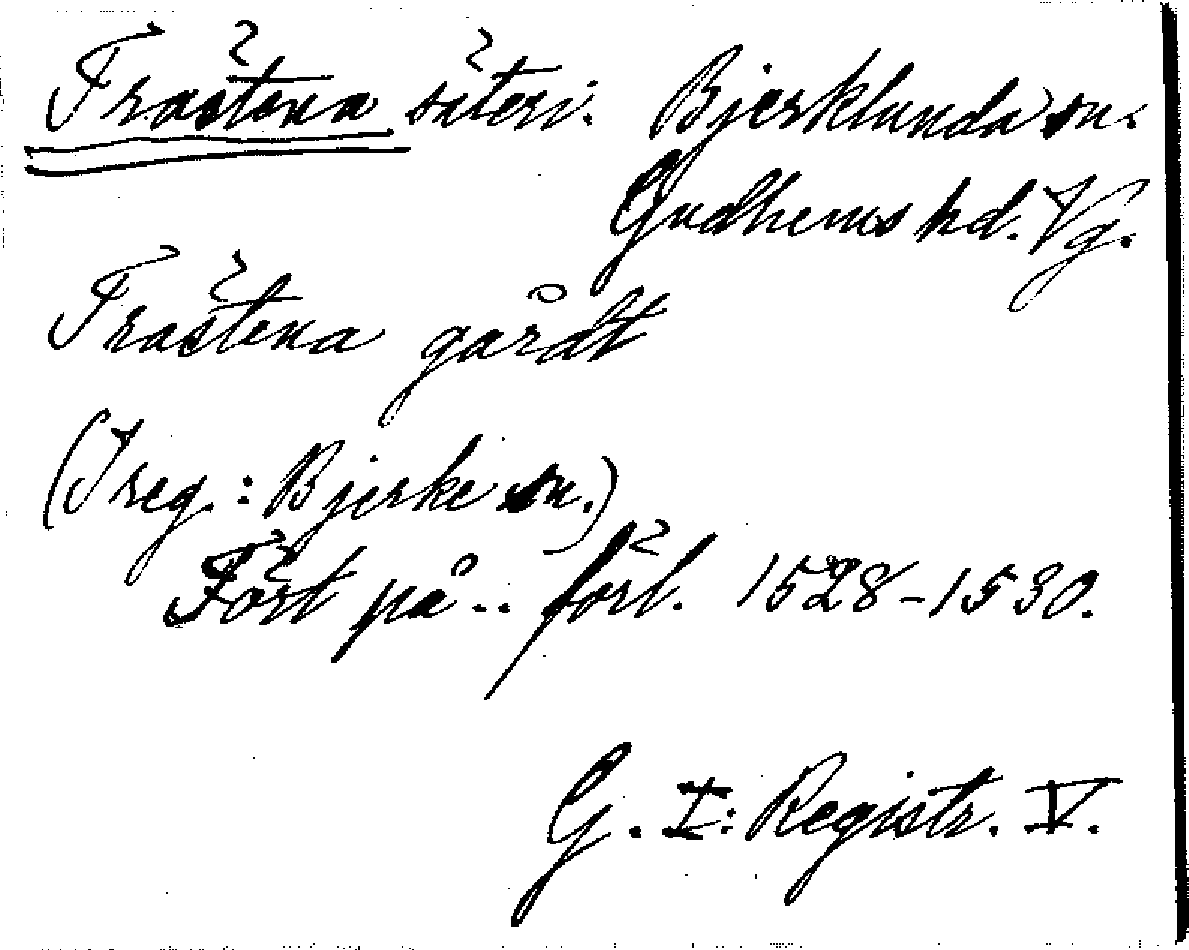 Frästena säteri. Bjerklunda sn.
Gudhems hd. Vg.
Frästena gårdt
(I reg.: Bjerke sn.)
Fört på .. förl. 1528-1530.
G. I: Registr. V.